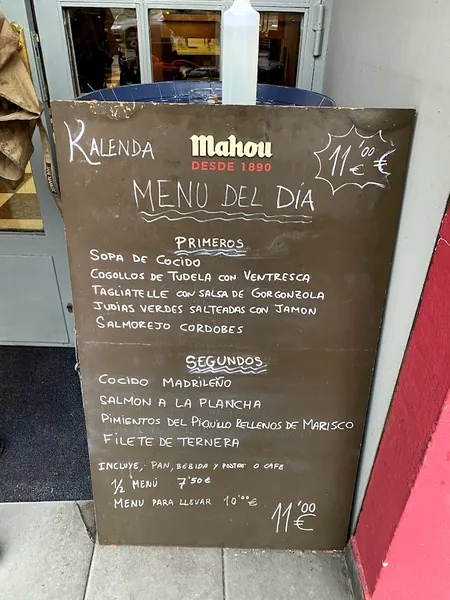 KALENDA
Mahou
DESDE 1890
11'00 €
MENU DEL DÍA
PRIMEROS
SOPA DE COCIDO
COGOLLOS DE TUDELA CON VENTRESCA
TAGLIATELLE CON SALSA DE GORGONZOLA
JUDIAS VERDES SALTEADAS CON JAMON
SALMOREJO CORDOBES
SEGUNDOS
COCIDO MADRILEÑO
SALMON A LA PLANCHA
PIMIENTOS DEL PIQUILLO RELLENOS DE MARISCO
FILETE DE TERNERA
INCLUYE, PAN, BEBIDA Y POSTRE O CAFE
1/2 MENÚ 7'50€
MENU PARA LLEVAR 10'00€
11'00 €